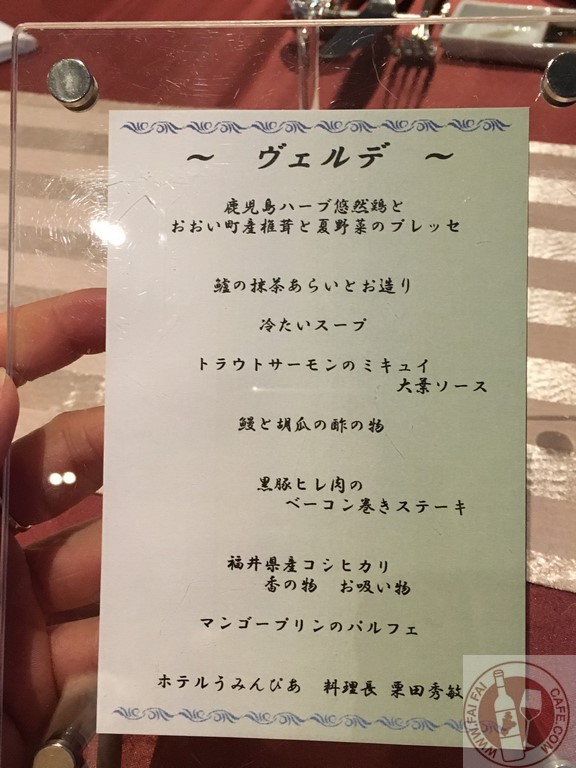 ～ ヴェルデ ～
鹿児島ハーブ悠然鶏と
おおい町産椎茸と夏野菜のプレッセ
鱸の抹茶あらいとお造り
冷たいスープ
トラウトサーモンのミキュイ
大葉ソース
鰻と胡瓜の酢の物
黒豚ヒレ肉の
ベーコン巻きステーキ
福井県産コシヒカリ
香の物 お吸い物
マンゴープリンのパルフェ
ホテルうみんぴあ 料理長 栗田秀敏
WWW.FAIFAICAFE.COM